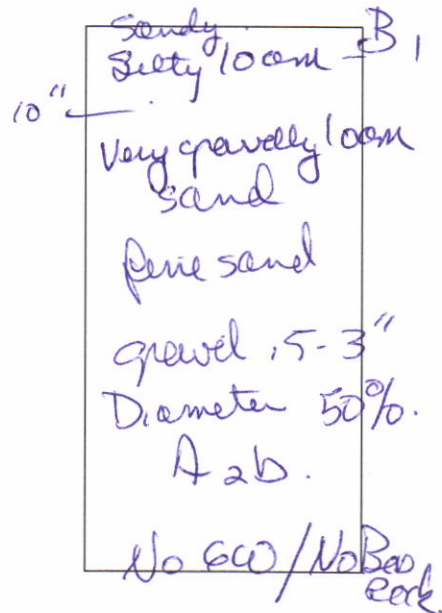 Sandy
Silty loam - B1
10"
Very gravelly loam
sand
fine sand
gravel .5-3"
Diameter 50%.
A2b.
No GW / No Bed
rock.